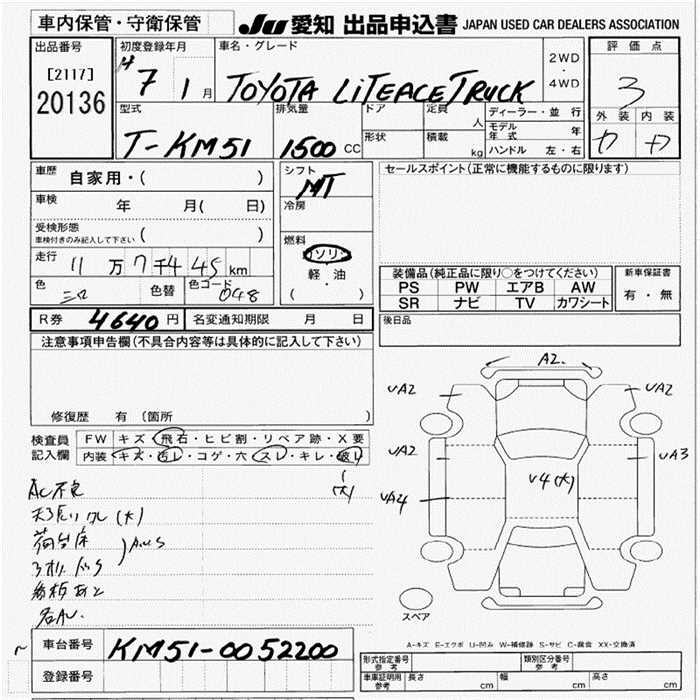 車内保管・守衛保管 JU 愛知 出品申込書 JAPAN USED CAR DEALERS ASSOCIATION
出品番号 初度登録年月 車名・グレード 2WD・4WD 評価点
[2117]
20136 H 7 1月 TOYOTA LiTEACE TRUCK 3
型式 排気量 ドア 定員 人 ディーラー・並行 外装 内装
T-KM51 1500 CC 形状 積載 kg モデル年式 年
ハンドル 左・右
車歴 自家用・( ) シフト MT セールスポイント(正常に機能するものに限ります)
車検 年 月( 日) 冷房
受検形態 ( )
車検付きのみ記入して下さい
燃料
走行 11万7千445km ガソリン
軽・油
( )
色 色替 色コード 048
装備品(純正品に限り○をつけてください) 新車保証書
PS PW エアB AW 有・無
SR ナビ TV カワシート
R券 4640円 名変通知期限 月 日 後日品
注意事項申告欄(不具合内容等は具体的に記入して下さい)
修復歴 有(箇所 )
検査員記入欄 FW キズ・飛石・ヒビ割・リペア跡・X要
内装 キズ・汚レ・コゲ・穴・スレ・キレ・破レ
(大)
AC不良
A2
UA2 UA2
UA2 UA3
UA4 V4(大)
スペア
A-キズ E-エクボ U-凹み W-補修跡 S-サビ C-腐食 XX-交換済
車台番号 KM51-0052200
登録番号
形式指定番号 参考 類別区分番号 参考
車庫証明用 参考 長さ cm 幅 cm 高さ cm